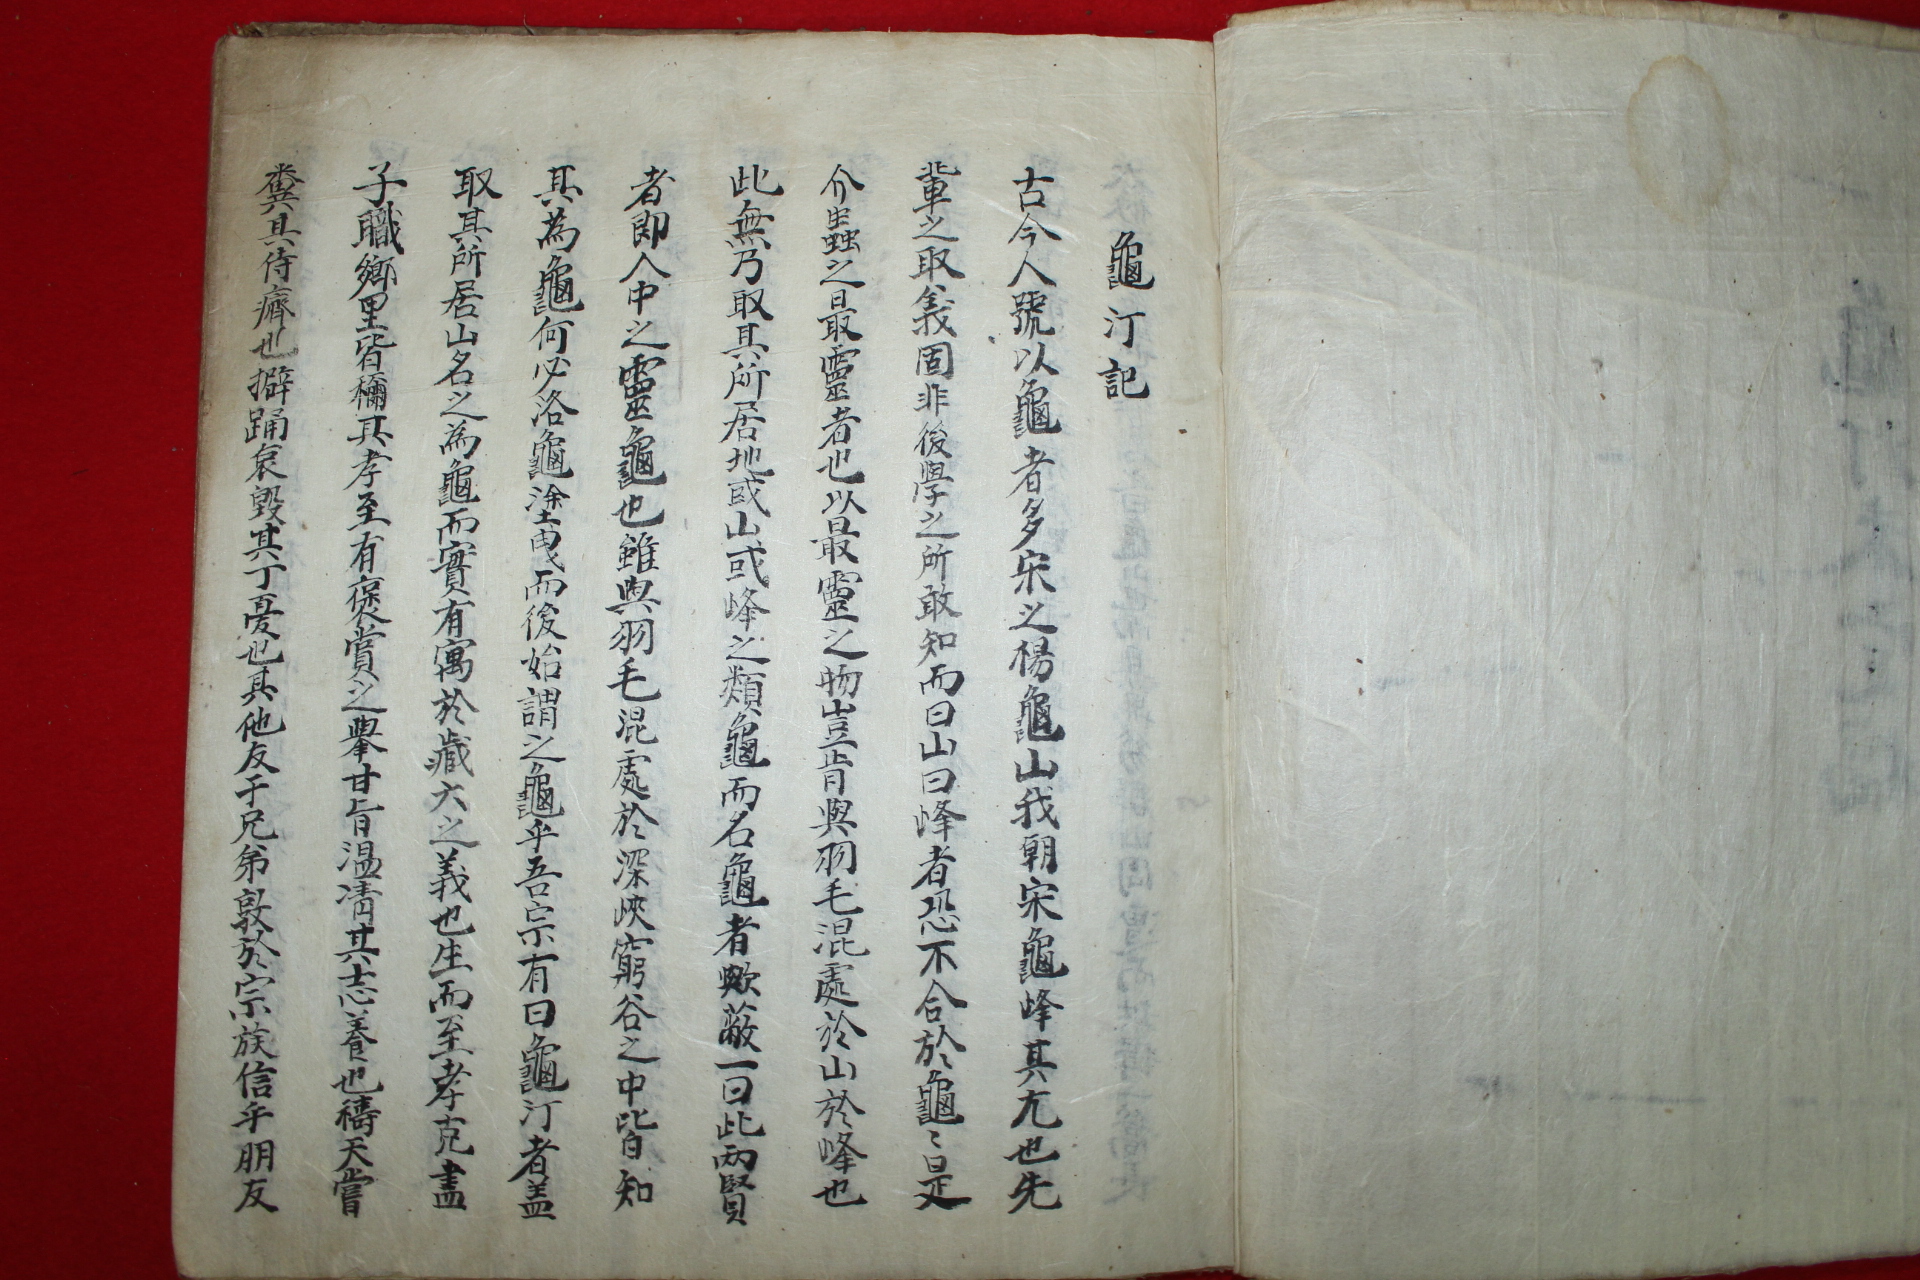 龜汀記
古今人號以龜者多宋之楊龜山我朝宋龜峰其尢也先
輩之取義固非後學之所敢知而曰山曰峰者恐不合於龜〻是
介蟲之最靈者也以最靈之物豈肯與羽毛混處於山於峰也
此無乃取其所居地或山或峰之類龜而名龜者歟蔽一曰此兩賢
者即人中之靈龜也雖與羽毛混處於深峽窮谷之中皆知
其為龜何必洛龜塗曳而後始謂之龜乎吾宗有曰龜汀者盖
取其所居山名之為龜而實有寓於藏六之義也生而至孝克盡
子職鄉里皆稱其孝至有褒賞之擧甘旨溫凊其志養也禱天嘗
糞其侍癠也擗踊哀毀其丁憂也其他友于兄弟敦於宗族信乎朋友